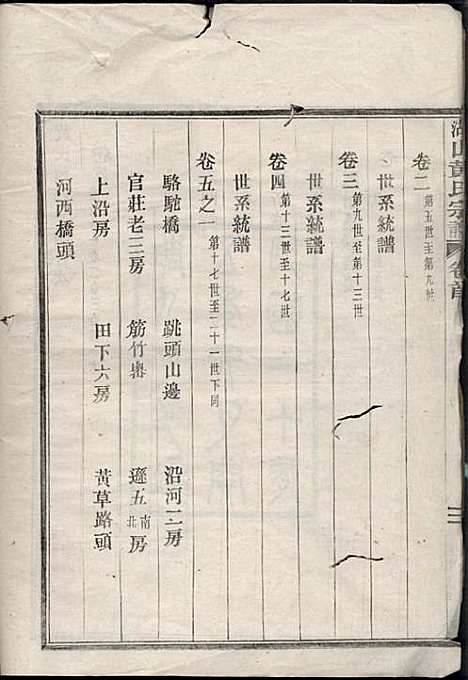 湖山黃氏宗譜 卷首 三
卷二 第五世至第九世
世系統譜
卷三 第九世至第十三世
世系統譜
卷四 第十三世至十七世
世系統譜
卷五之一 第十七世至二十一世下同
駱駝橋 跳頭山邊 沿河二房
官莊老三房 筋竹嶴 遜五南北房
上沿房 田下六房 黃草路頭
河西橋頭